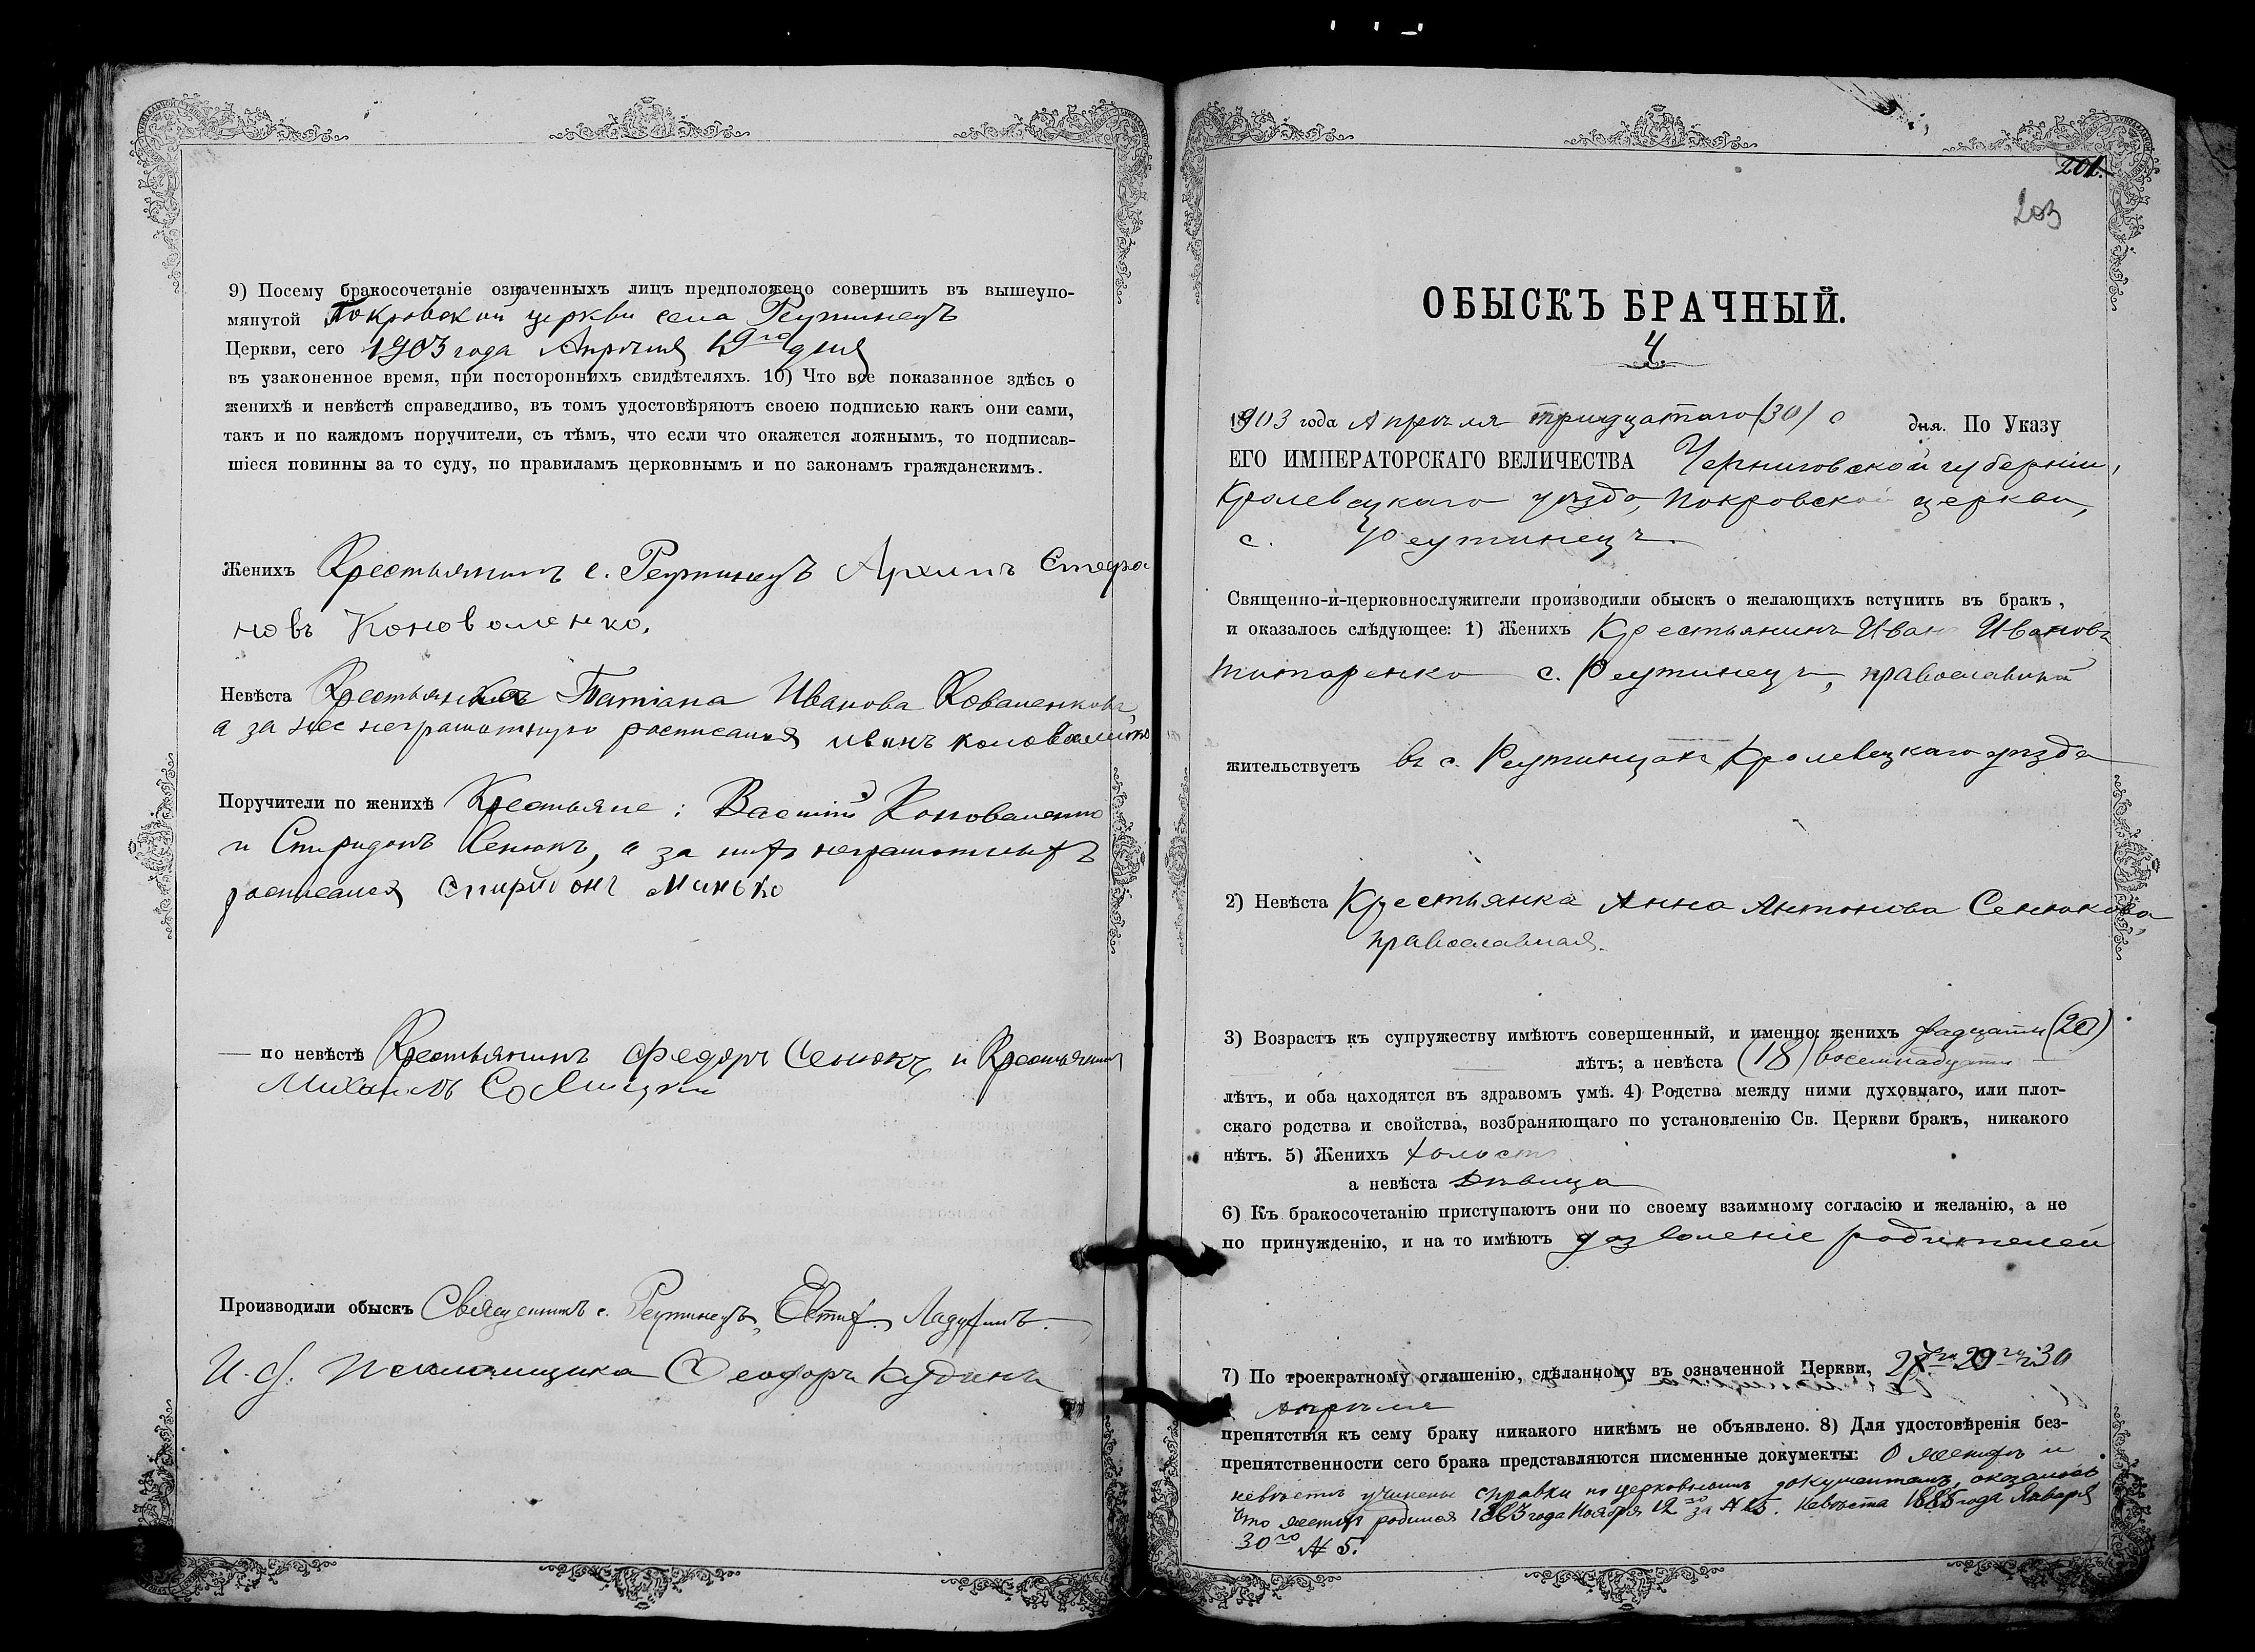 9) Посему бракосочетаніе означенныхъ лицъ предположено совершить въ вышеупо-
мянутой Покровской церкви села Реутинецъ
Церкви, сего 1903 года Апрѣля 19го дня
въ узаконенное время, при постороннихъ свидѣтеляхъ. 10) Что все показанное здѣсь о
женихѣ и невѣстѣ справедливо, въ томъ удостовѣряютъ своею подписью какъ они сами,
такъ и по каждомъ поручители, съ тѣмъ, что если что окажется ложнымъ, то подписав-
шіеся повинны за то суду, по правиламъ церковнымъ и по законамъ гражданскимъ.
Женихъ Крестьянинъ с. Реутинецъ Архипъ Стефа
новъ Коноваленко.
Невѣста Крестьянка Татіана Иванова Коваленкова,
а за нее неграмотную росписался иванъ коноваленко
Поручители по женихѣ Крестьяне: Василій Коноваленко
и Спиридонъ Сенюкъ, а за нихъ неграмотныхъ
росписался спиридонъ Манько
— по невѣстѣ Крестьянинъ Федоръ Сенюкъ и Крестьянинъ
Михаилъ
Производили обыскъ Священникъ с. Реутинецъ, Евтиф.
И. д. Псаломщика Ѳеодоръ Кудинъ
201.
203
ОБЫСКЪ БРАЧНЫЙ.
4.
1903 года Апрѣля тридцатаго (30) дня. По Указу
ЕГО ИМПЕРАТОРСКАГО ВЕЛИЧЕСТВА Черниговской губерніи,
Кролевецкаго уѣзда, Покровской церкви,
с. Реутинецъ
Священно-и-церковнослужители производили обыскъ о желающихъ вступить въ бракъ,
и оказалось слѣдующее: 1) Женихъ Крестьянинъ Иванъ Ивановъ
Титаренко с. Реутинецъ, православный
жительствуетъ въ с. Реутинцахъ Кролевецкаго уѣзда
2) Невѣста Крестьянка Анна Антонова Сенюкова,
православная.
3) Возрастъ къ супружеству имѣютъ совершенный, и именно: женихъ двадцати (20)
лѣтъ; а невѣста (18) восемнадцати
лѣтъ, и оба находятся въ здравомъ умѣ. 4) Родства между ними духовнаго, или плот-
скаго родства и свойства, возбраняющаго по установленію Св. Церкви бракъ, никакого
нѣтъ. 5) Женихъ холостъ
а невѣста дѣвица
6) Къ бракосочетанію приступаютъ они по своему взаимному согласію и желанію, а не
по принужденію, и на то имѣютъ дозволеніе родителей
7) По троекратному оглашенію, сдѣланному въ означенной Церкви, 29го и 30
Апрѣля
препятствія къ сему браку никакого никѣмъ не объявлено. 8) Для удостовѣренія без-
препятственности сего брака представляются писменные документы: О женихѣ и
невѣстѣ учинены справки по церковнымъ документамъ, оказалось
что женихъ родился 1883 года Ноября 12го за № 25. Невѣста 1885 года Января
30го № 5.